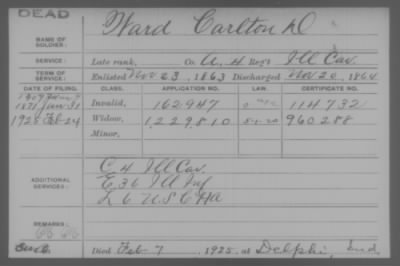 DEAD
NAME OF SOLDIER: Ward Carlton D
SERVICE: Late rank, Co. A, 4 Reg't Ill Cav.
TERM OF SERVICE: Enlisted Nov 23, 1863 Discharged Nov 20, 1864
DATE OF FILING. CLASS. APPLICATION NO. LAW. CERTIFICATE NO.
1871 Jan 31 Invalid, 162947 114732
1925 Feb 24 Widow, 1,229,810 5-1-20 960288
Minor,
ADDITIONAL SERVICES:
C 4 Ill Cav.
E 36 Ill Inf
L 6 U S C HA
REMARKS:
Died Feb 7, 1925, at Delphi, Ind.